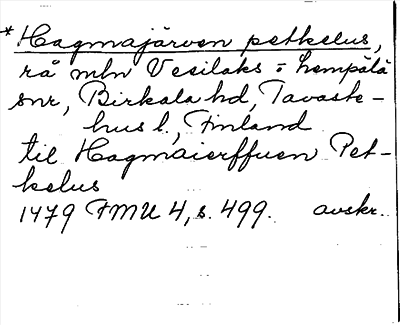 *Hagmajärven petkelus,
rå mln Vesilaks o. Lempälä
snr, Birkala hd, Tavaste-
hus l., Finland
til Hagmaierffuen Pet-
kelus
1479 FMU 4, s. 499. avskr.